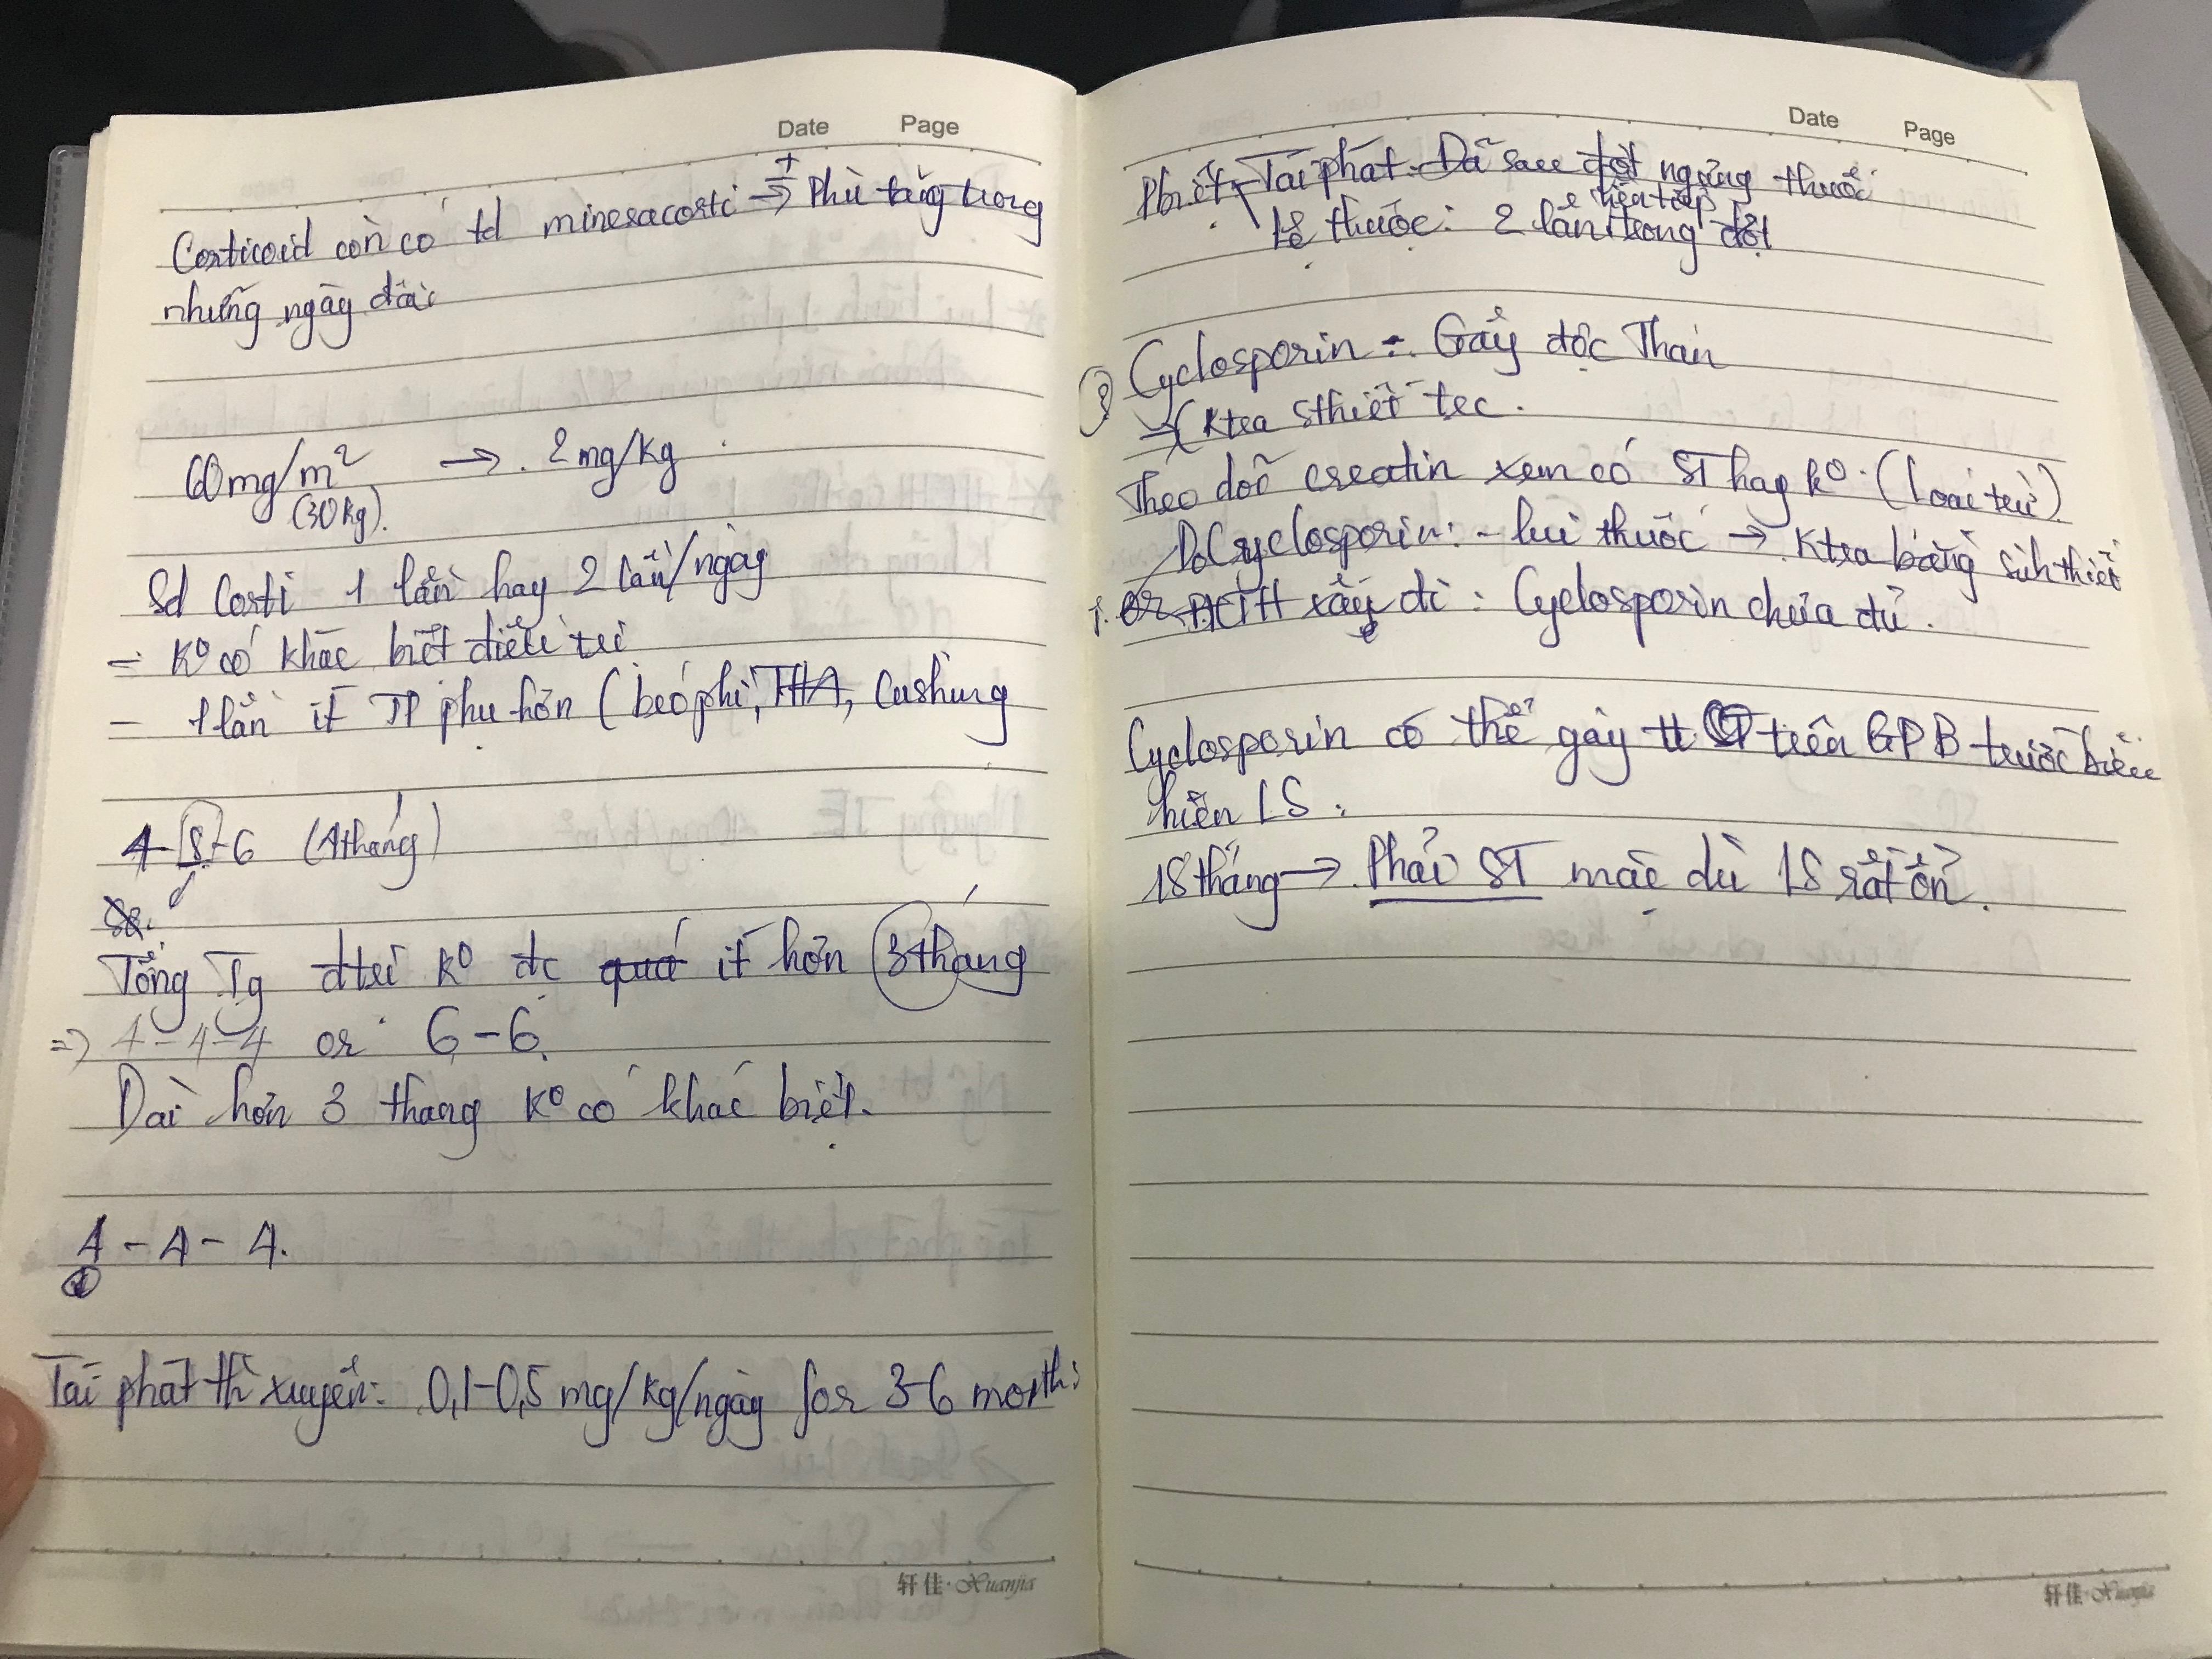 Date Page
Corticoid còn có td mineracorti → Phù tăng trong
+
những ngày đầu
60mg/m² → 2mg/kg
(30kg).
Sd Corti 1 lần hay 2 lần/ngày
- K⁰ có khác biệt điều trị
- 1 lần ít TP phụ hơn (béo phì, THA, Cushing
4-8-6 (4 tháng)
Tổng Tg đtrị k⁰ đc quá ít hơn 3 tháng
=> 4-4-4 or 6-6.
Dài hơn 3 tháng k⁰ có khác biệt.
4-4-4.
Tái phát th xuyên: 0,1-0,5 mg/kg/ngày for 3-6 months
轩佳·Xuanjia
Date Page
Tái phát: Đã sau đợt ngừng thuốc
liên tiếp
thuộc: 2 lần trong đợt
Cyclosporin: Gây độc Thận
→ Ktra sthiết
Theo dõi creatin xem có ST hay k⁰. (Loại trừ)
Cyclosporin: - lui thuốc → Ktra bằng sinh thiết
or HCTH xấu đi: Cyclosporin chưa đủ.
Cyclosporin có thể gây tt ST trên GPB trước biểu
hiện LS.
18 tháng → Phải ST mặc dù LS rất ổn.
轩佳·Xuanjia